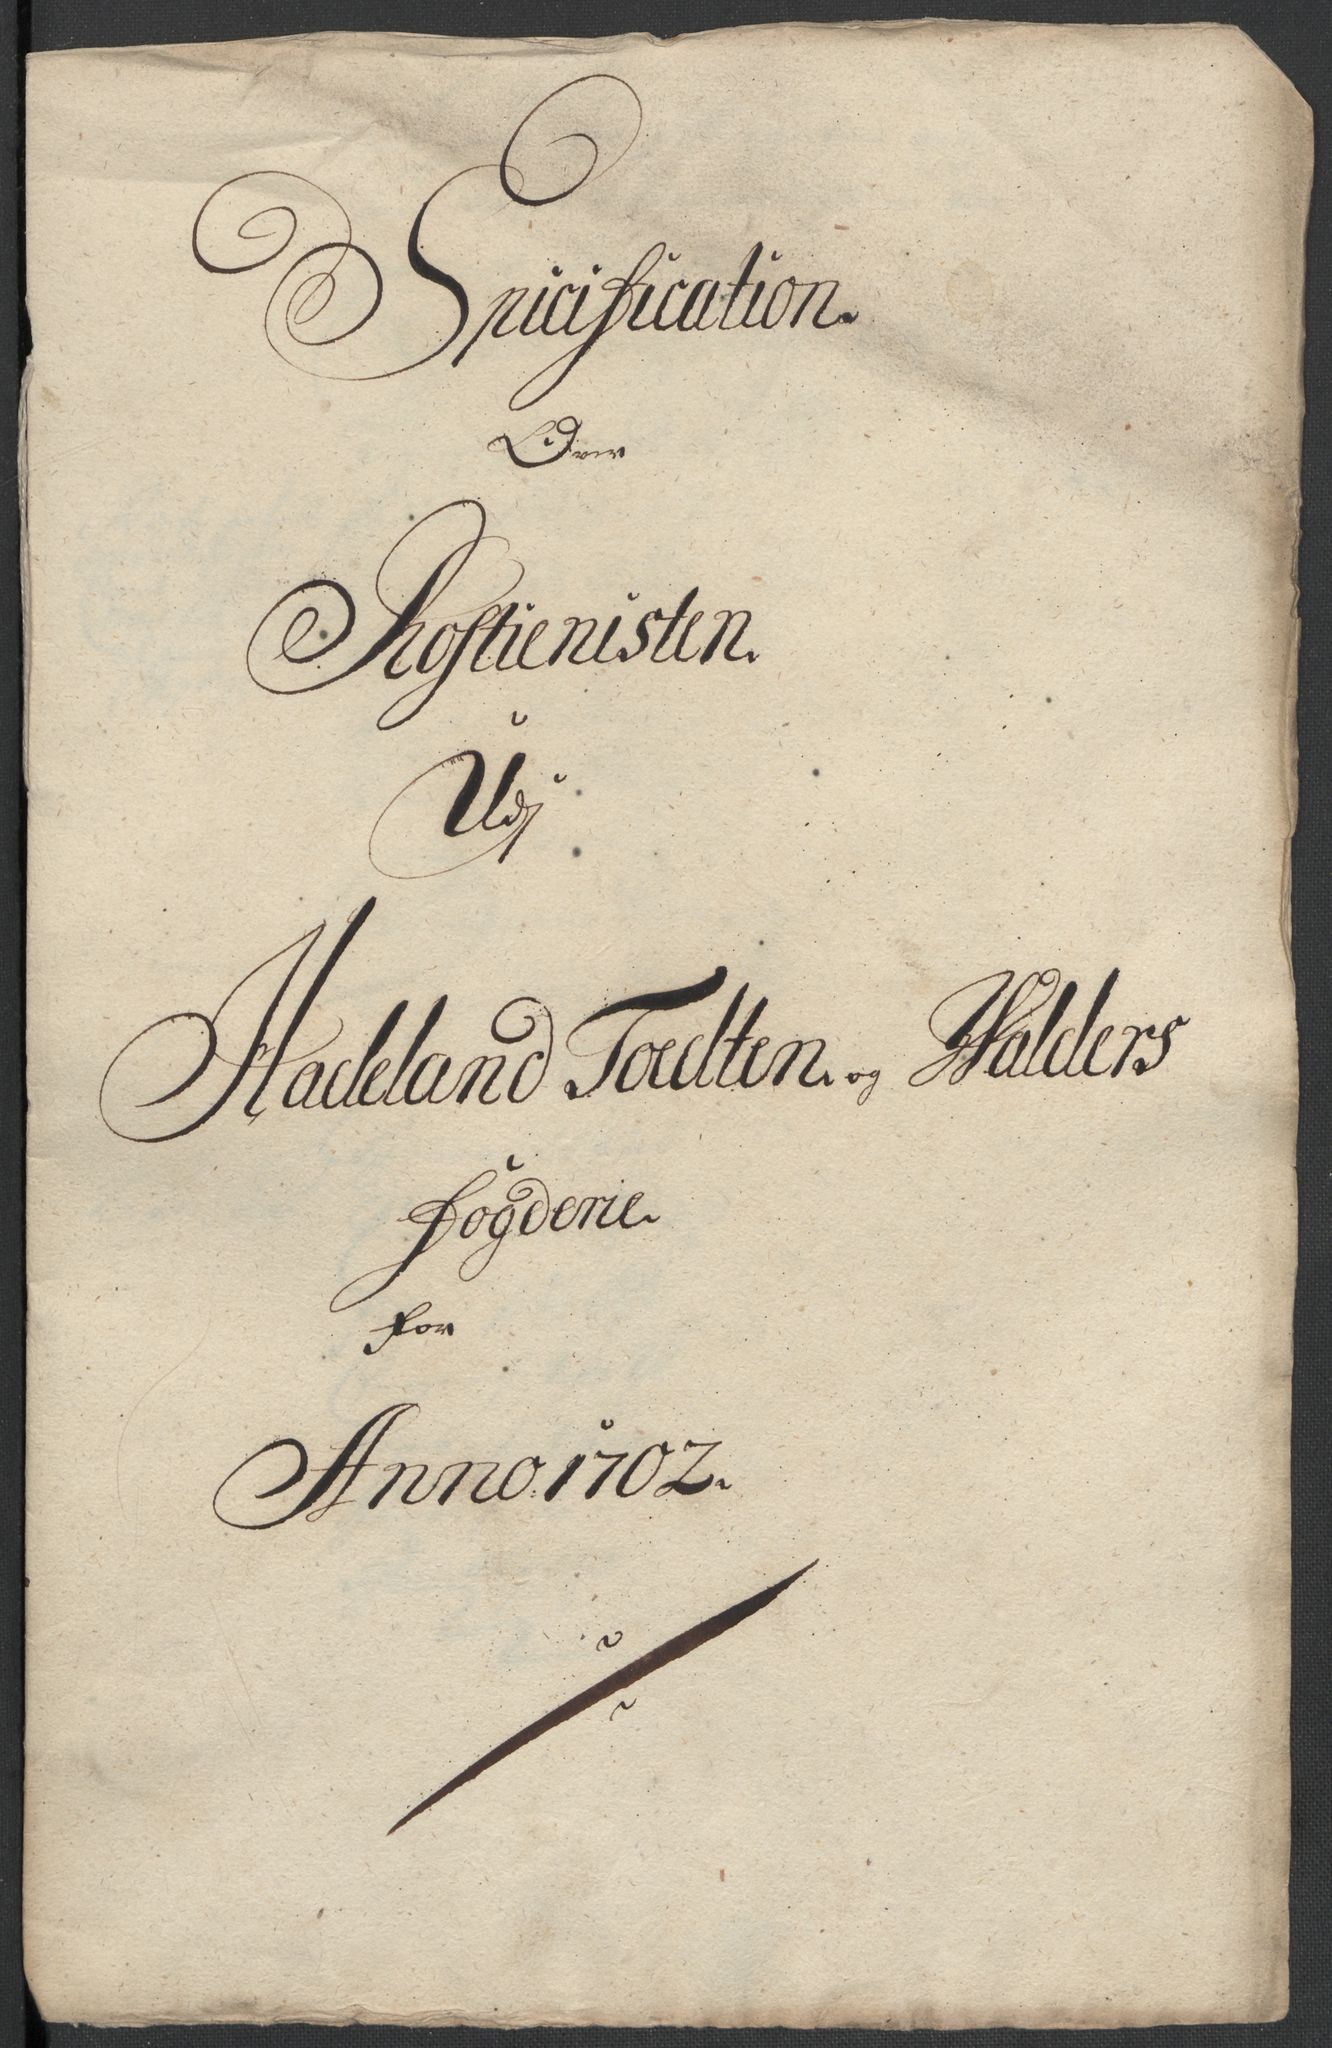 Specification.
Over
Rostienisten.
Udj
Hadeland Toedten. og Walders
fogderie.
for
Anno 1702.